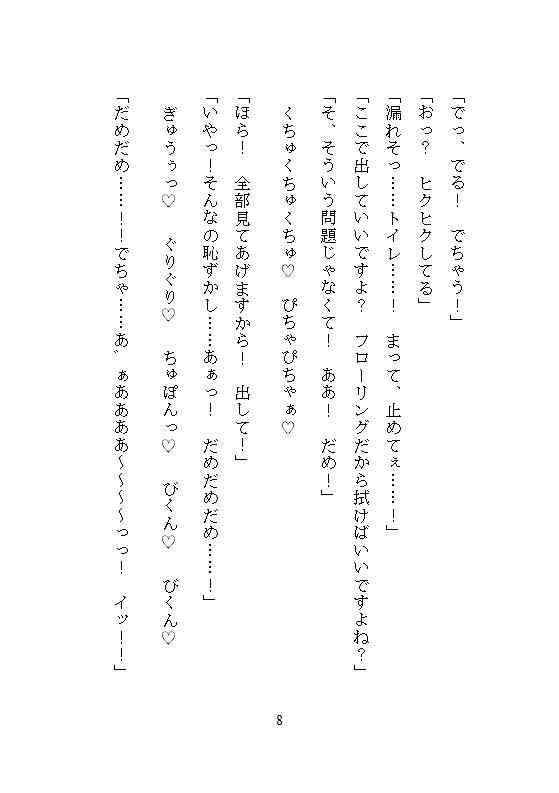 「でっ、でる！　でちゃう！」
「おっ？　ヒクヒクしてる」
「漏れそっ……トイレ……！　まって、止めてぇ……！」
「ここで出していいですよ？　フローリングだから拭けばいいですよね？」
「そ、そういう問題じゃなくて！　ああ！　だめ！」
くちゅくちゅくちゅ♡　ぴちゃぴちゃぁ♡
「ほら！　全部見てあげますから！　出して！」
「いやっ！そんなの恥ずかし……あぁっ！　だめだめだめ……！」
ぎゅうぅっ♡　ぐりぐり♡　ちゅぽんっ♡　びくん♡　びくん♡
「だめだめ……！！でちゃ……あ゛ぁああああ～～～～っっ！　イッ！！」
8